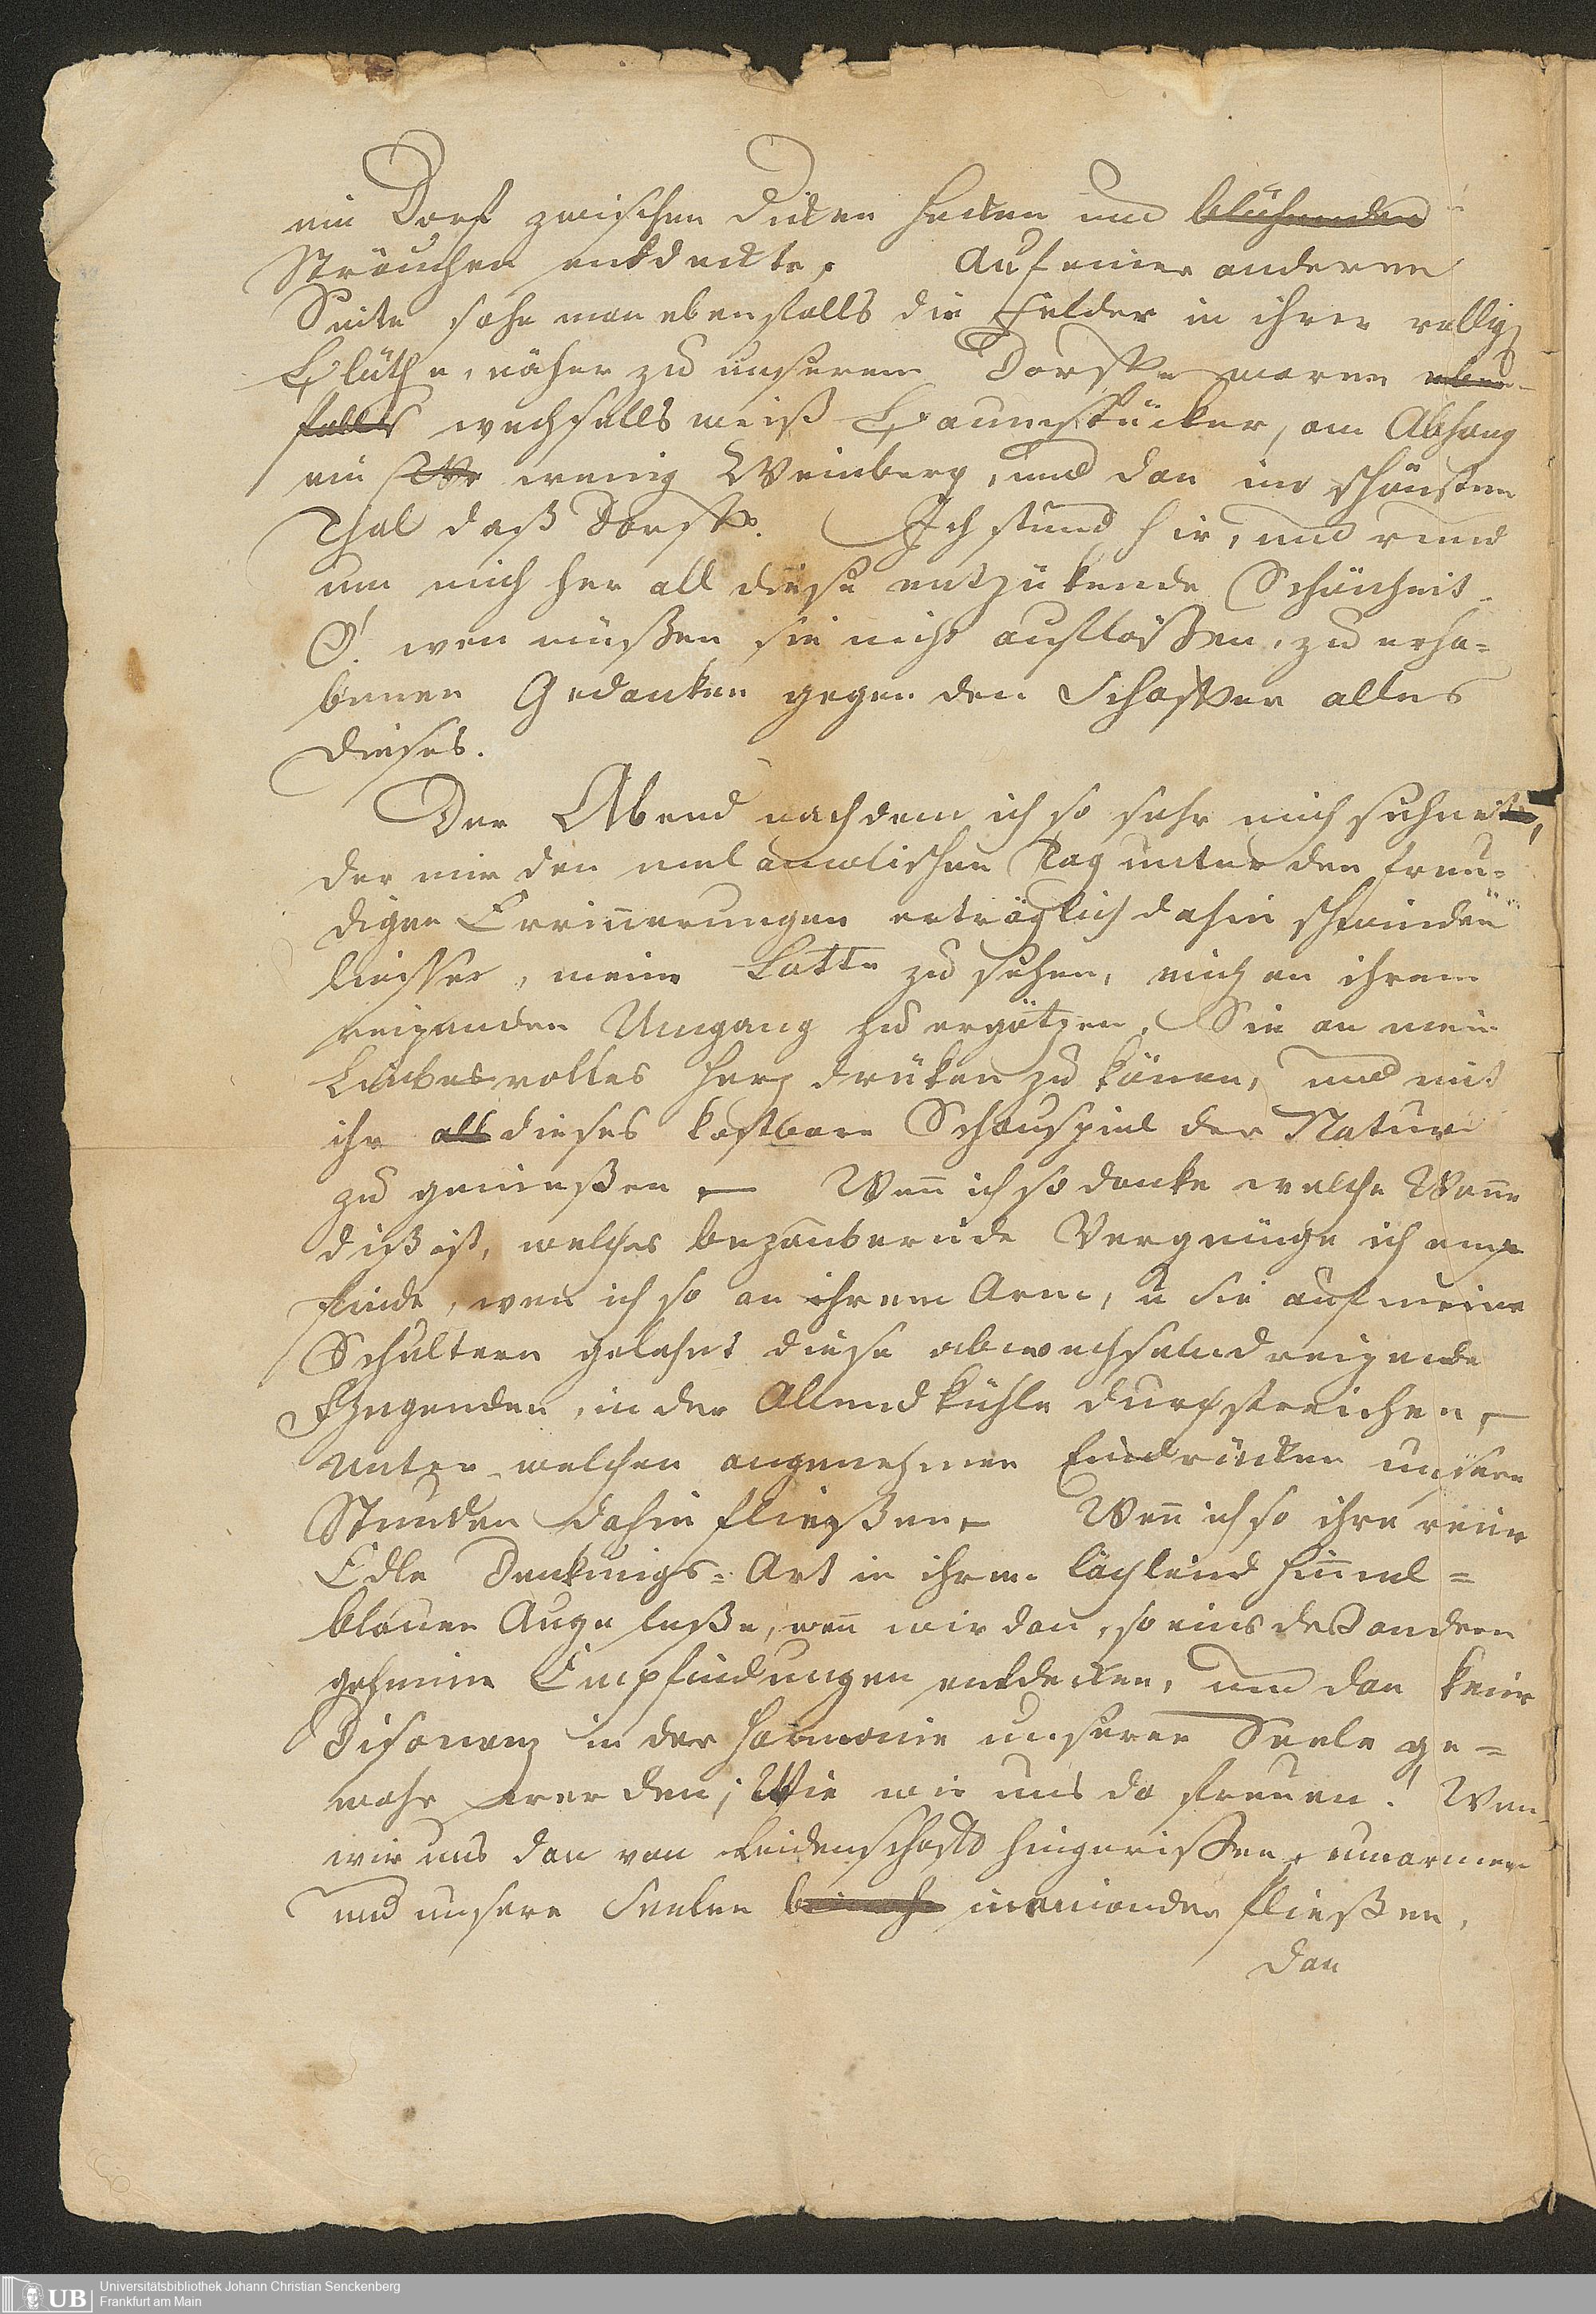 ein Dorf zwischen dicken Hecken und blühenden
Sträuchen entdeckte, Auf einer anderen
Seite sahe man ebenfalls die Felder in ihrer völlig
Blüthe, näher zu unserem Dorffe waren eben-
falls wechsellsweiß Baumstücker, am Abhang
ein We wenig Weinberg, und dan im schönsten
Thal daß Dorff. Ich stund hir, und rund
um mich her all diese entzükende Schönheit.
O! wen müßen sie nicht auflößen, zu erha=
benen Gedanken gegen den Schaffer alles
dieses.
Der Abend nach dem ich so sehr mich sehnete,
der mir den melancolischen Tag unter den freu=
digen Errinnerungen erträglich dahin schwinden
liesse, meine Lotte zu sehen, mich an ihrem
reizenden Umgang zu ergötzen, Sie an mein
Liebesvolles Herz drüken zu können, und mit
ihr all dieses kostbare Schauspiel der Natur
zu genießen, — Wenn ich so denke welche Wonne
dieß ist, welches bezaubernde Vergnüge ich emp
finde, wen ich so an ihrem Arm, u Sie auf meine
Schultern gelehnt diese abwechselnd reizende
Gegenden, in der Abendkühle durchstreichen, —
unter welchen angenehmen Eindrücken unsere
Stunden dahin fließen, — Wenn ich so ihre reine
Edle Denkungs=Art in ihrem lächlend himmel=
blauen Auge leße, wenn wir dan, so eins deß andern
geheime Empfindungen entdecken, und dan keine
Disonanz in der Harmonie unserer Seele ge=
wahr werden; Wie wir uns da freuen! Wen
wir uns dan von Leidenschafft hingerißen, umarmen
und unsere Seelen beinah ineinander fließen,
dan
Universitätsbibliothek Johann Christian Senckenberg
Frankfurt am Main
UB